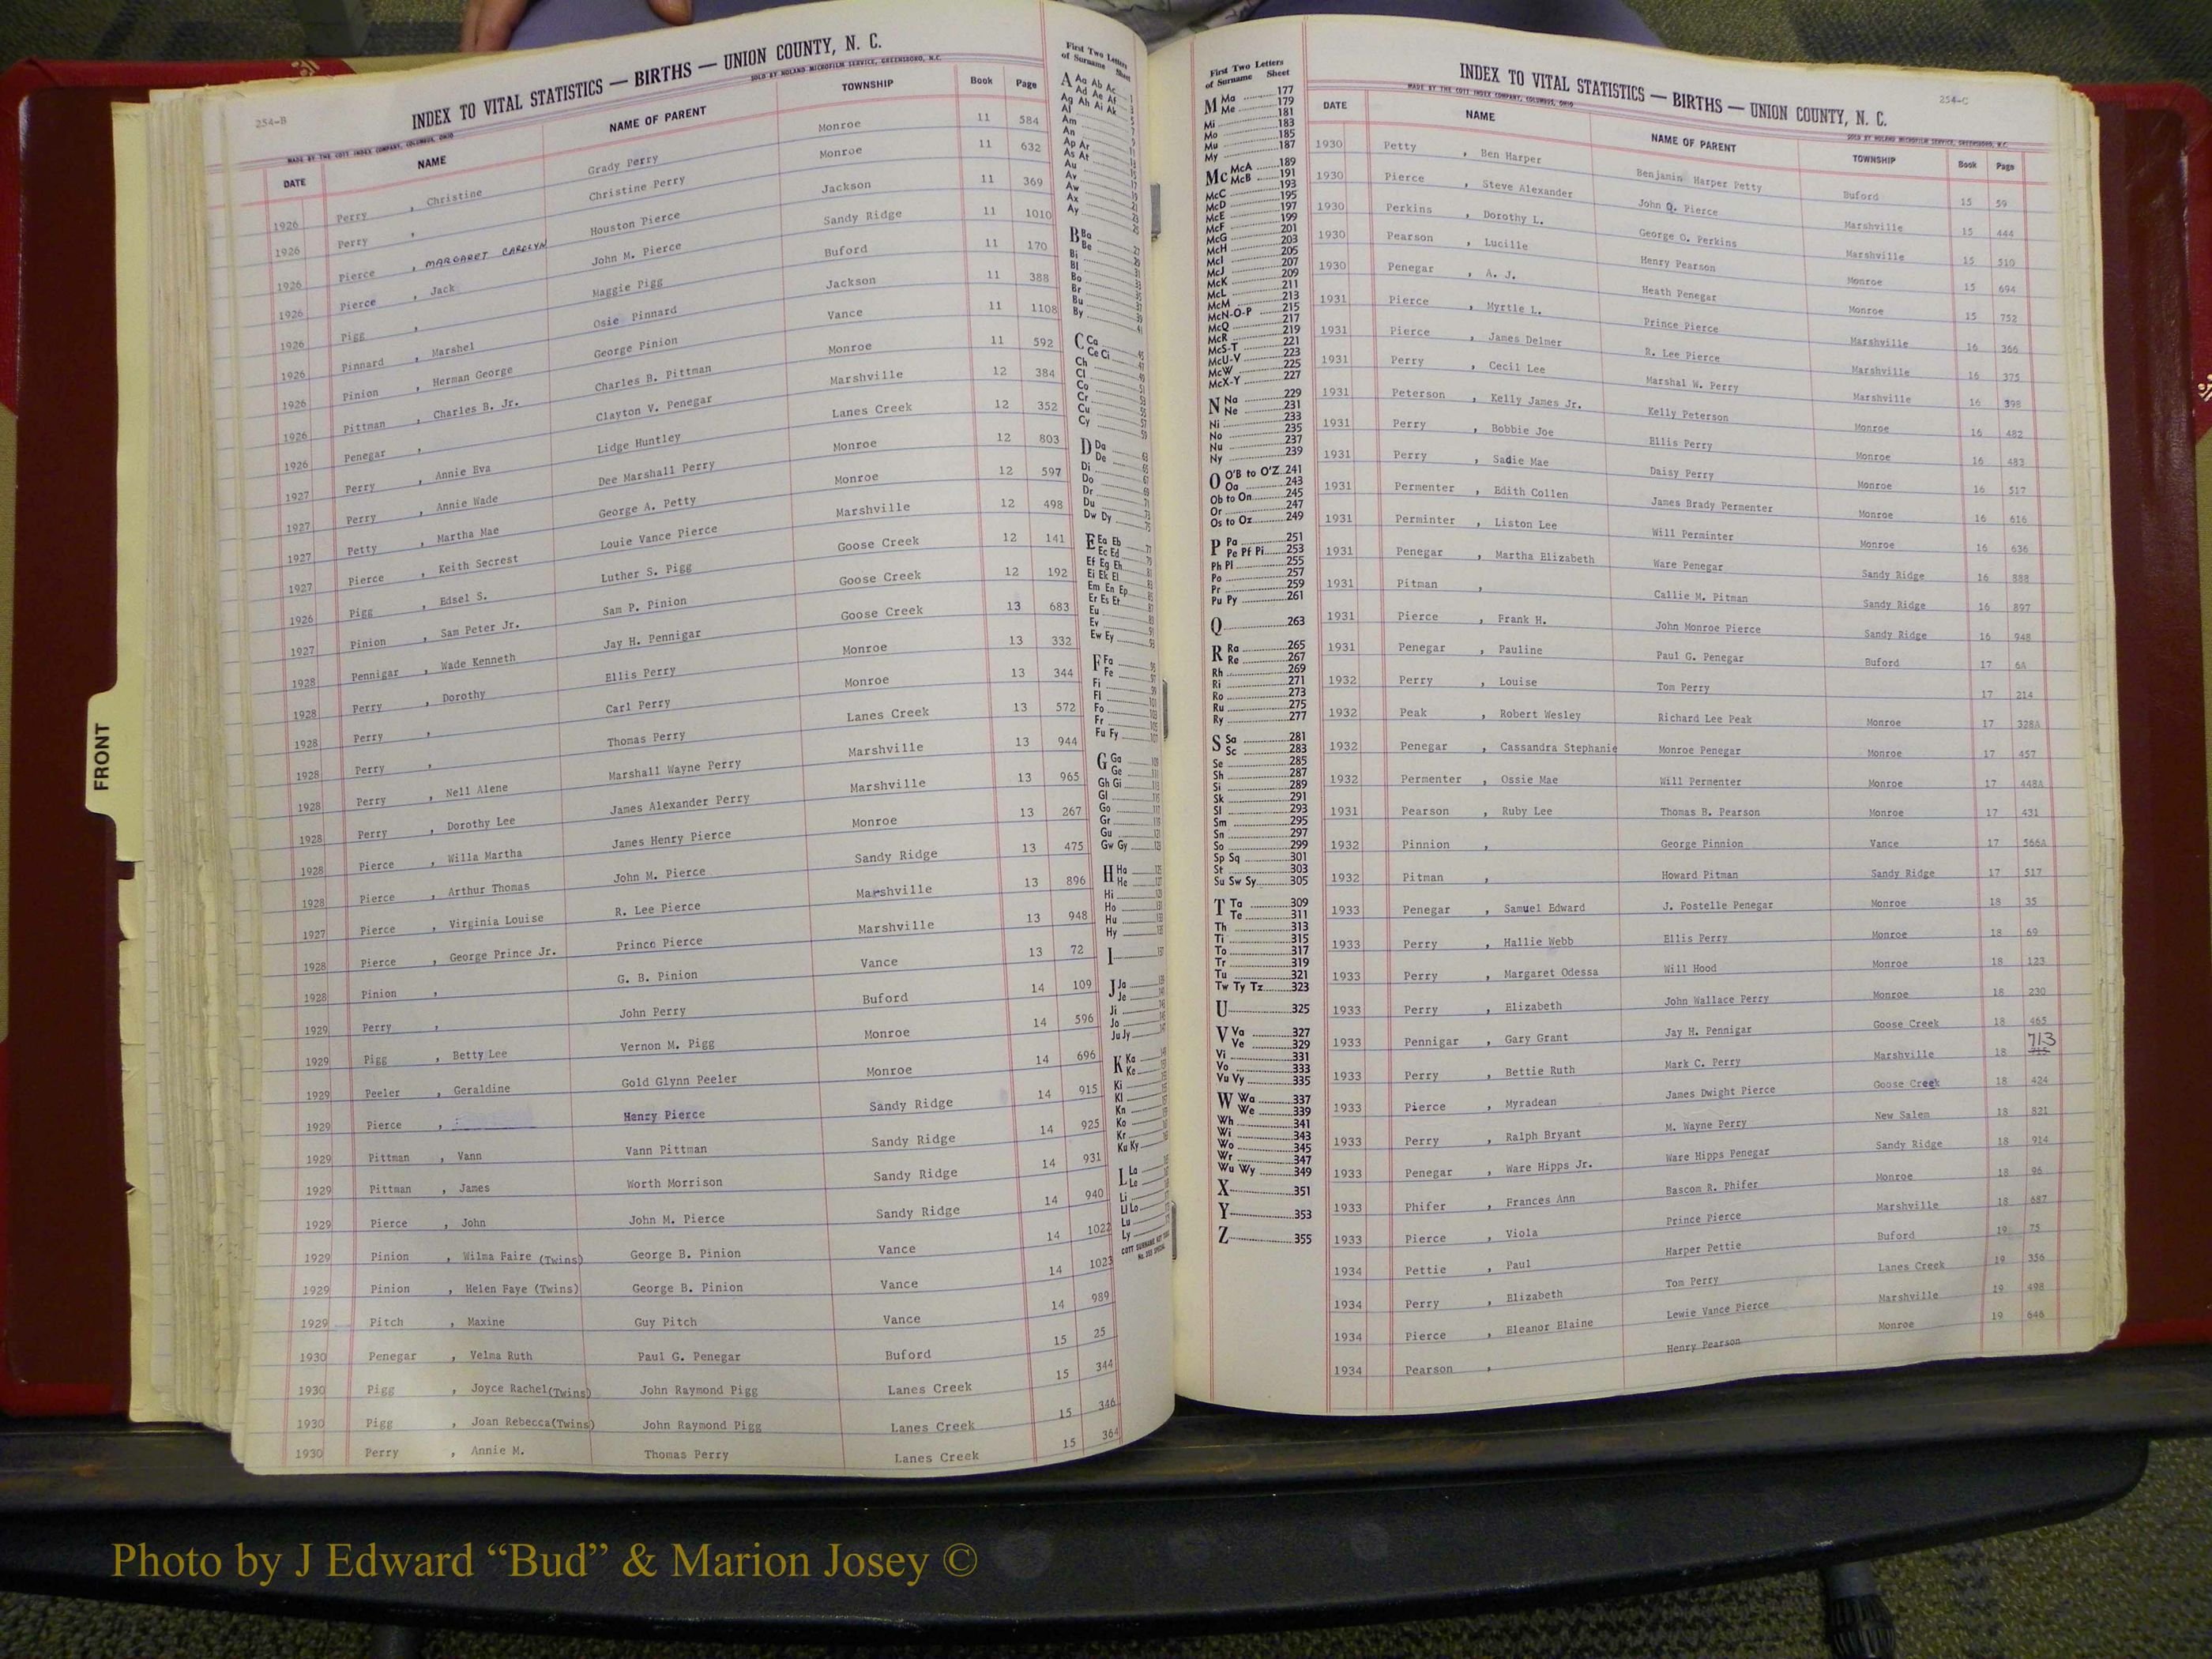 254-B
INDEX TO VITAL STATISTICS — BIRTHS — UNION COUNTY, N. C.
MADE BY THE COTT INDEX COMPANY, COLUMBUS, OHIO SOLD BY NOLAND MICROFILM SERVICE, GREENSBORO, N.C.
DATE NAME NAME OF PARENT TOWNSHIP Book Page
1926 Perry , Christine Grady Perry Monroe 11 584
1926 Perry , Christine Perry Monroe 11 632
1926 Pierce , MARGARET CAROLYN Houston Pierce Jackson 11 369
1926 Pierce , Jack John M. Pierce Sandy Ridge 11 1010
1926 Pigg , Maggie Pigg Buford 11 170
1926 Pinnard , Marshel Osie Pinnard Jackson 11 388
1926 Pinion , Herman George George Pinion Vance 11 1108
1926 Pittman , Charles B. Jr. Charles B. Pittman Monroe 11 592
1926 Penegar , Clayton V. Penegar Marshville 12 384
1927 Perry , Annie Eva Lidge Huntley Lanes Creek 12 352
1927 Perry , Annie Wade Dee Marshall Perry Monroe 12 803
1927 Petty , Martha Mae George A. Petty Monroe 12 597
1927 Pierce , Keith Secrest Louie Vance Pierce Marshville 12 498
1926 Pigg , Edsel S. Luther S. Pigg Goose Creek 12 141
1927 Pinion , Sam Peter Jr. Sam P. Pinion Goose Creek 12 192
1928 Pennigar , Wade Kenneth Jay H. Pennigar Goose Creek 13 683
1928 Perry , Dorothy Ellis Perry Monroe 13 332
1928 Perry , Carl Perry Monroe 13 344
1928 Perry , Thomas Perry Lanes Creek 13 572
1928 Perry , Nell Alene Marshall Wayne Perry Marshville 13 944
1928 Perry , Dorothy Lee James Alexander Perry Marshville 13 965
1928 Pierce , Willa Martha James Henry Pierce Monroe 13 267
1928 Pierce , Arthur Thomas John M. Pierce Sandy Ridge 13 475
1927 Pierce , Virginia Louise R. Lee Pierce Marshville 13 896
1928 Pierce , George Prince Jr. Prince Pierce Marshville 13 948
1928 Pinion , G. B. Pinion Vance 13 72
1929 Perry , John Perry Buford 14 109
1929 Pigg , Betty Lee Vernon M. Pigg Monroe 14 596
1929 Peeler , Geraldine Gold Glynn Peeler Monroe 14 696
1929 Pierce , Henry Pierce Sandy Ridge 14 915
1929 Pittman , Vann Vann Pittman Sandy Ridge 14 925
1929 Pittman , James Worth Morrison Sandy Ridge 14 931
1929 Pierce , John John M. Pierce Sandy Ridge 14 940
1929 Pinion , Wilma Faire (Twins) George B. Pinion Vance 14 1022
1929 Pinion , Helen Faye (Twins) George B. Pinion Vance 14 1023
1929 Pitch , Maxine Guy Pitch Vance 14 989
1930 Penegar , Velma Ruth Paul G. Penegar Buford 15 25
1930 Pigg , Joyce Rachel(Twins) John Raymond Pigg Lanes Creek 15 344
1930 Pigg , Joan Rebecca(Twins) John Raymond Pigg Lanes Creek 15 346
1930 Perry , Annie M. Thomas Perry Lanes Creek 15 364
First Two Letters
of Surname Sheet
A Aa Ab Ac
Ad Ae Af
Ag Ah Ai Ak
Al
Am
An
Ap Ar
As At
Au
Av
Aw
Ax
Ay
B Ba
Be
Bi
Bl
Bo
Br
Bu
By
C Ca
Ce Ci
Ch
Cl
Co
Cr
Cu
Cy
D Da
De
Di
Do
Dr
Du
Dw Dy
E Ea Eb
Ec Ed
Ef Eg Eh
Ei Ek El
Em En Ep
Er Es Et
Eu
Ev
Ew Ey
F Fa
Fe
Fi
Fl
Fo
Fr
Fu Fy
G Ga
Ge
Gh Gi
Gl
Go
Gr
Gu
Gw Gy
H Ha
He
Hi
Ho
Hu
Hy
I
J Ja
Je
Ji
Jo
Ju Jy
K Ka
Ke
Ki
Kl
Kn
Ko
Kr
Ku Ky
L La
Le
Li
Ll Lo
Lu
Ly
FRONT
First Two Letters
of Surname Sheet
M Ma 177
Me 179
Mi 181
Mo 183
Mu 185
My 187
Mc McA 189
McB 191
McC 193
McD 195
McE 197
McF 199
McG 201
McH 203
McI 205
McJ 207
McK 209
McL 211
McM 213
McN-O-P 215
McQ 217
McR 219
McS-T 221
McU-V 223
McW 225
McX-Y 227
N Na 229
Ne 231
Ni 233
No 235
Nu 237
Ny 239
O O'B to O'Z 241
Oa 243
Ob to On 245
Or 247
Os to Oz 249
P Pa 251
Pe Pf Pi 253
Ph Pl 255
Po 257
Pr 259
Pu Py 261
Q 263
R Ra 265
Re 267
Rh 269
Ri 271
Ro 273
Ru 275
Ry 277
S Sa 281
Sc 283
Se 285
Sh 287
Si 289
Sk 291
Sl 293
Sm 295
Sn 297
So 299
Sp Sq 301
St 303
Su Sw Sy 305
T Ta 309
Te 311
Th 313
Ti 315
To 317
Tr 319
Tu 321
Tw Ty Tz 323
U 325
V Va 327
Ve 329
Vi 331
Vo 333
Vu Vy 335
W Wa 337
We 339
Wh 341
Wi 343
Wo 345
Wr 347
Wu Wy 349
X 351
Y 353
Z 355
254-C
INDEX TO VITAL STATISTICS — BIRTHS — UNION COUNTY, N. C.
MADE BY THE COTT INDEX COMPANY, COLUMBUS, OHIO SOLD BY NOLAND MICROFILM SERVICE, GREENSBORO, N.C.
DATE NAME NAME OF PARENT TOWNSHIP Book Page
1930 Petty , Ben Harper Benjamin Harper Petty Buford 15 59
1930 Pierce , Steve Alexander John Q. Pierce Marshville 15 444
1930 Perkins , Dorothy L. George O. Perkins Marshville 15 510
1930 Pearson , Lucille Henry Pearson Monroe 15 694
1930 Penegar , A. J. Heath Penegar Monroe 15 752
1931 Pierce , Myrtle L. Prince Pierce Marshville 16 366
1931 Pierce , James Delmer R. Lee Pierce Marshville 16 375
1931 Perry , Cecil Lee Marshal W. Perry Marshville 16 398
1931 Peterson , Kelly James Jr. Kelly Peterson Monroe 16 482
1931 Perry , Bobbie Joe Ellis Perry Monroe 16 483
1931 Perry , Sadie Mae Daisy Perry Monroe 16 517
1931 Permenter , Edith Collen James Brady Permenter Monroe 16 616
1931 Perminter , Liston Lee Will Perminter Monroe 16 636
1931 Penegar , Martha Elizabeth Ware Penegar Sandy Ridge 16 888
1931 Pitman , Callie M. Pitman Sandy Ridge 16 897
1931 Pierce , Frank H. John Monroe Pierce Sandy Ridge 16 948
1931 Penegar , Pauline Paul G. Penegar Buford 17 6A
1932 Perry , Louise Tom Perry 17 214
1932 Peak , Robert Wesley Richard Lee Peak Monroe 17 328A
1932 Penegar , Cassandra Stephanie Monroe Penegar Monroe 17 457
1932 Permenter , Ossie Mae Will Permenter Monroe 17 448A
1931 Pearson , Ruby Lee Thomas B. Pearson Monroe 17 431
1932 Pinnion , George Pinnion Vance 17 566A
1932 Pitman , Howard Pitman Sandy Ridge 17 517
1933 Penegar , Samuel Edward J. Postelle Penegar Monroe 18 35
1933 Perry , Hallie Webb Ellis Perry Monroe 18 69
1933 Perry , Margaret Odessa Will Hood Monroe 18 123
1933 Perry , Elizabeth John Wallace Perry Monroe 18 230
1933 Pennigar , Gary Grant Jay H. Pennigar Goose Creek 18 465
1933 Perry , Bettie Ruth Mark C. Perry Marshville 18 713
1933 Pierce , Myradean James Dwight Pierce Goose Creek 18 424
1933 Perry , Ralph Bryant M. Wayne Perry New Salem 18 821
1933 Penegar , Ware Hipps Jr. Ware Hipps Penegar Sandy Ridge 18 914
1933 Phifer , Frances Ann Bascom R. Phifer Monroe 18 96
1933 Pierce , Viola Prince Pierce Marshville 18 687
1934 Pettie , Paul Harper Pettie Buford 19 75
1934 Perry , Elizabeth Tom Perry Lanes Creek 19 356
1934 Pierce , Eleanor Elaine Lewie Vance Pierce Marshville 19 498
1934 Pearson , Henry Pearson Monroe 19 646
Photo by J Edward “Bud” & Marion Josey ©